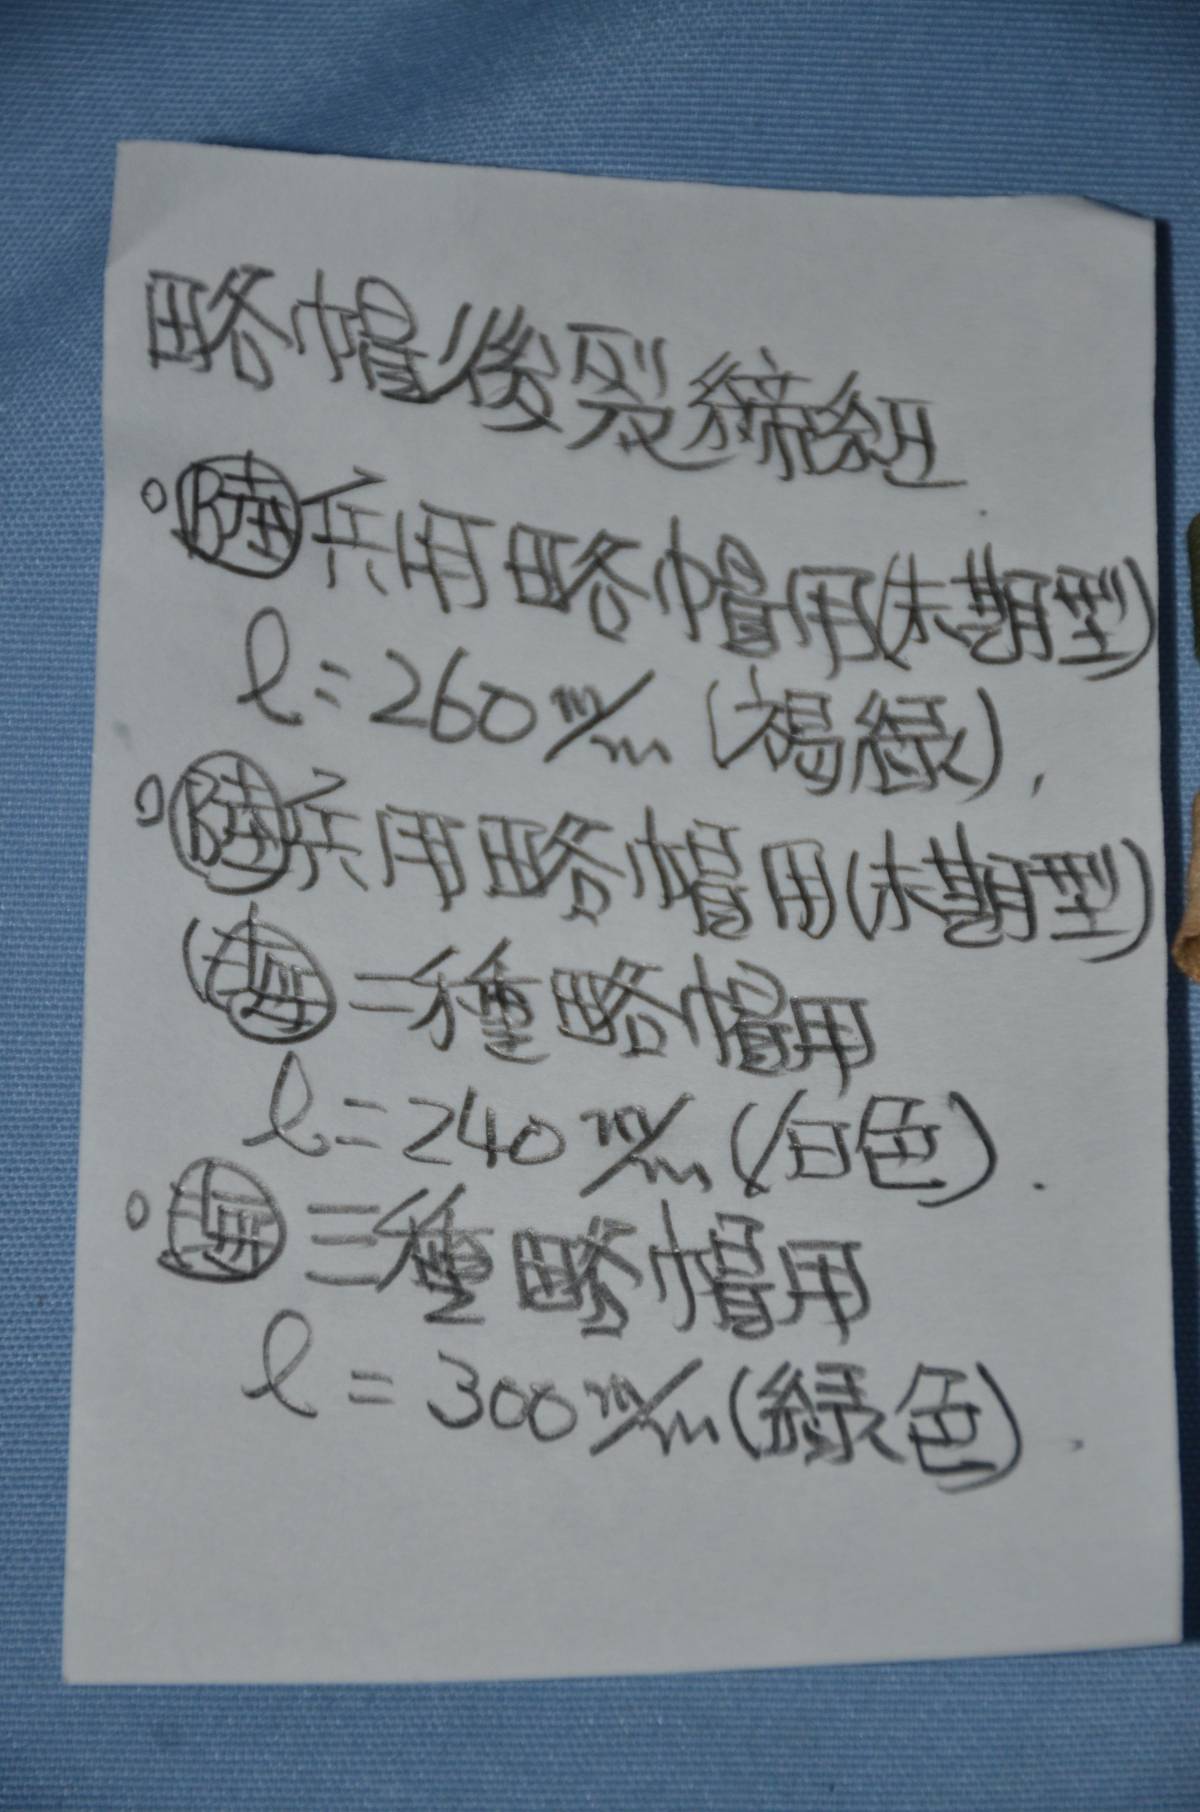 略帽後裂締紐
○㊥陸兵用略帽用(末期型)
l=260m/m(褐緑)
○陸兵用略帽用(末期型)
(海二種略帽用
l=240m/m(白色)
○海三種略帽用
l=300m/m(緑色)